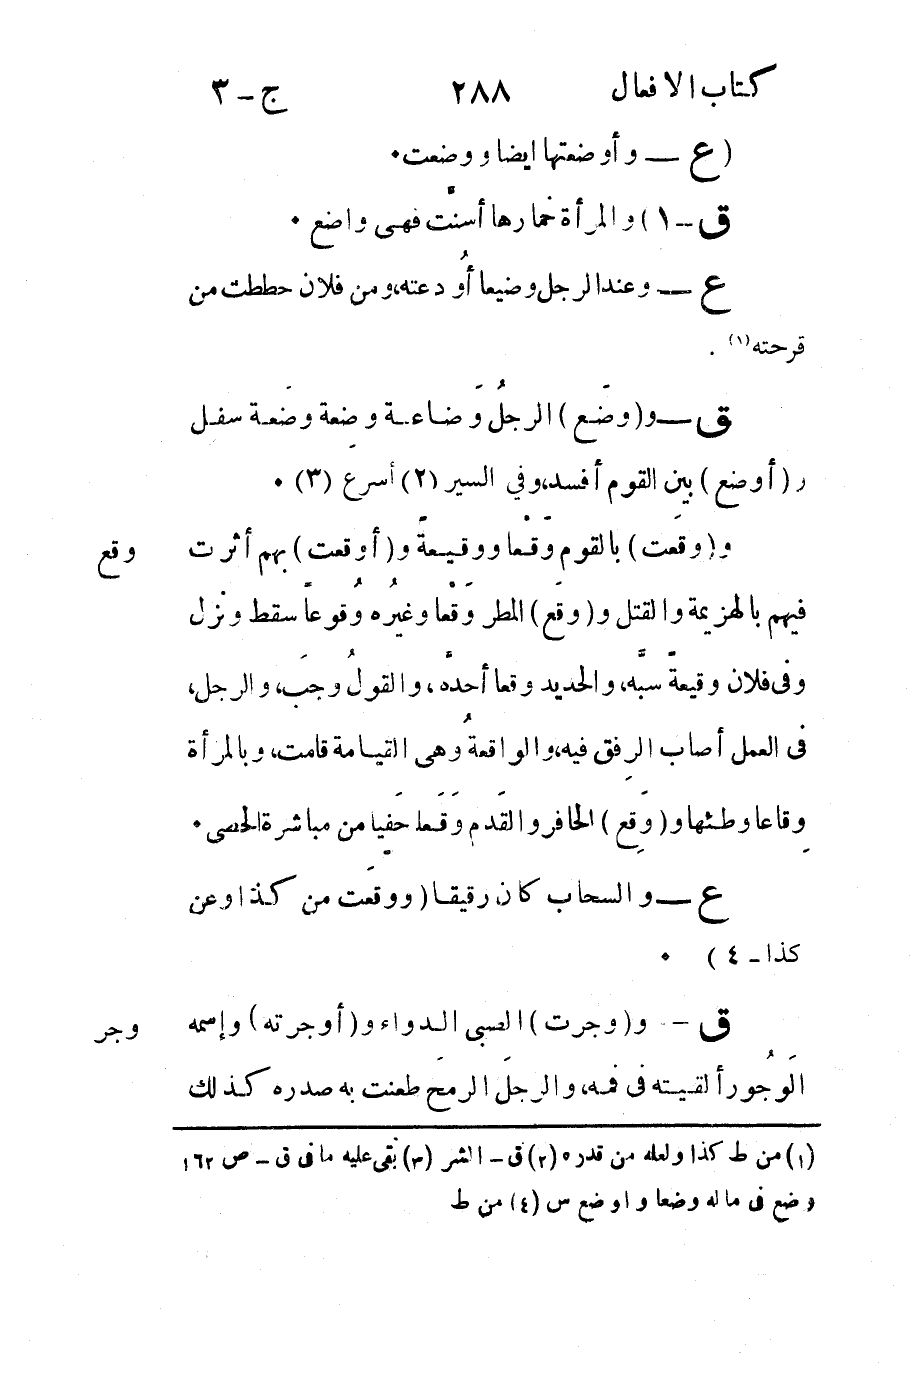 كتاب الافعال ٢٨٨ ج - ٣
( ع — وأوضعتها ايضا ووضعت ٠
ق - ١ ) والمرأة خمارها أسنّت فهى واضع ٠
ع — وعند الرجل وضيعا أودعته، ومن فلان حططت من
قرحته (١) .
ق — و( وضَع ) الرجلُ وَضاعة وضعة وضَعة سفل
ر ( أوضع ) بين القوم أفسد، وفي السير (٢) أسرع (٣) ٠
و( وقَعت ) بالقوم وَقْعا ووقيعةً و( أوقعت ) بهم أثرت وقع
فيهم بالهزيمة والقتل و( وقَع ) المطر وَقْعا وغيرُه وُقوعاً سقط ونزل
وفى فلان وقيعةً سبّه، والحديد وقعا أحدّه، والقولُ وجَب، والرجل،
فى العمل أصاب الرفق فيه، والواقعةُ وهى القيامة قامت، وبالمرأة
وِقاعا وطئها و( وَقِع ) الحافر والقدَم وَقَعا حَفِيا من مباشرة الحصى ٠
ع — والسحاب كان رقيقا ( ووقَعت من كذا وعن
كذا - ٤ ) ٠
ق - و( وجرت ) الصبى الدواء و( أوجرته ) وإسمه وجر
الوَجُور ألقيته فى فمه، والرجلَ الرمحَ طعنت به صدره كذلك
(١) من ط كذا ولعله من قدره (٢) ق - الشر (٣) بقى عليه ما فى ق - ص ١٦٢
وضع فى ماله وضعا واوضع س (٤) من ط